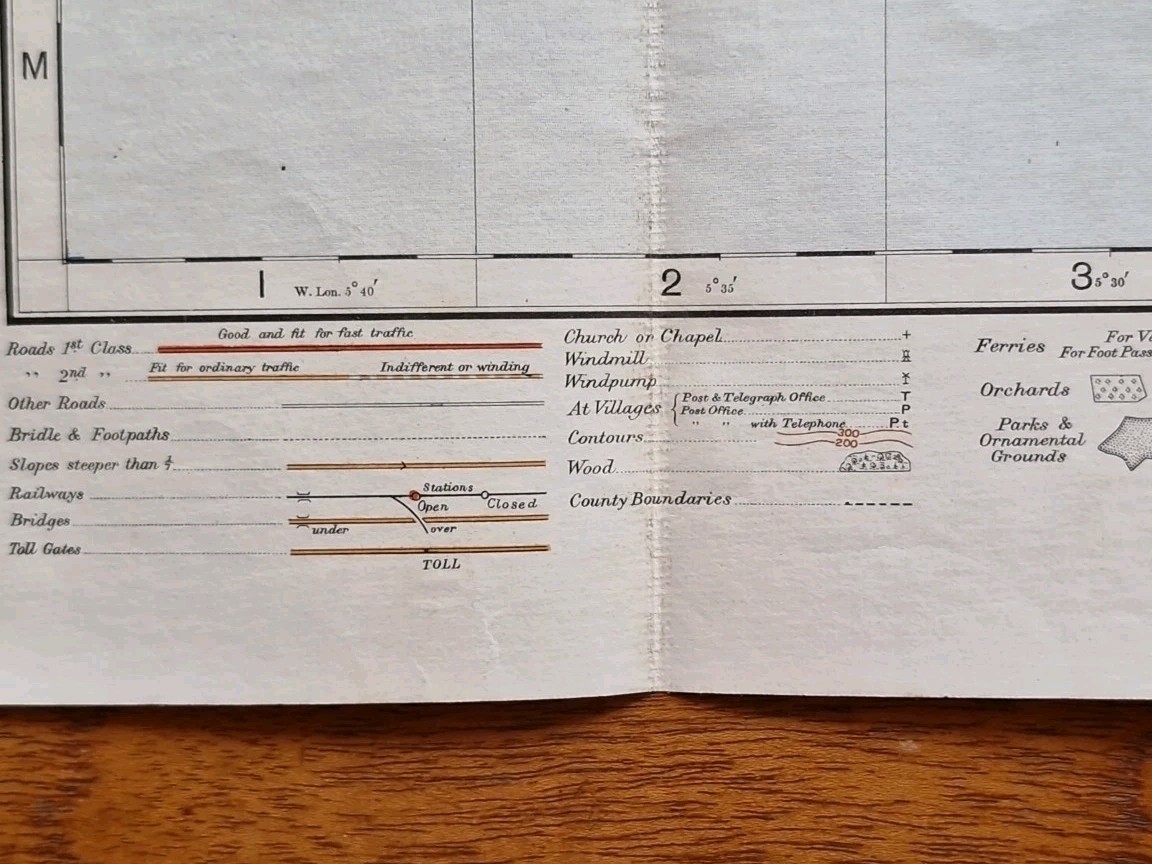 M
1 W. Lon. 5° 40′ 2 5° 35′ 3 5° 30′
Good and fit for fast traffic
Roads 1st Class
Fit for ordinary traffic Indifferent or winding
„ 2nd „
Other Roads
Bridle & Footpaths
Slopes steeper than
Railways Stations Open Closed
Bridges under over
Toll Gates
TOLL
Church or Chapel +
Windmill
Windpump
At Villages
Post & Telegraph Office T
Post Office P
„ „ with Telephone P.t
Contours 300
200
Wood
County Boundaries
Ferries
For
For Foot
Orchards
Parks &
Ornamental
Grounds